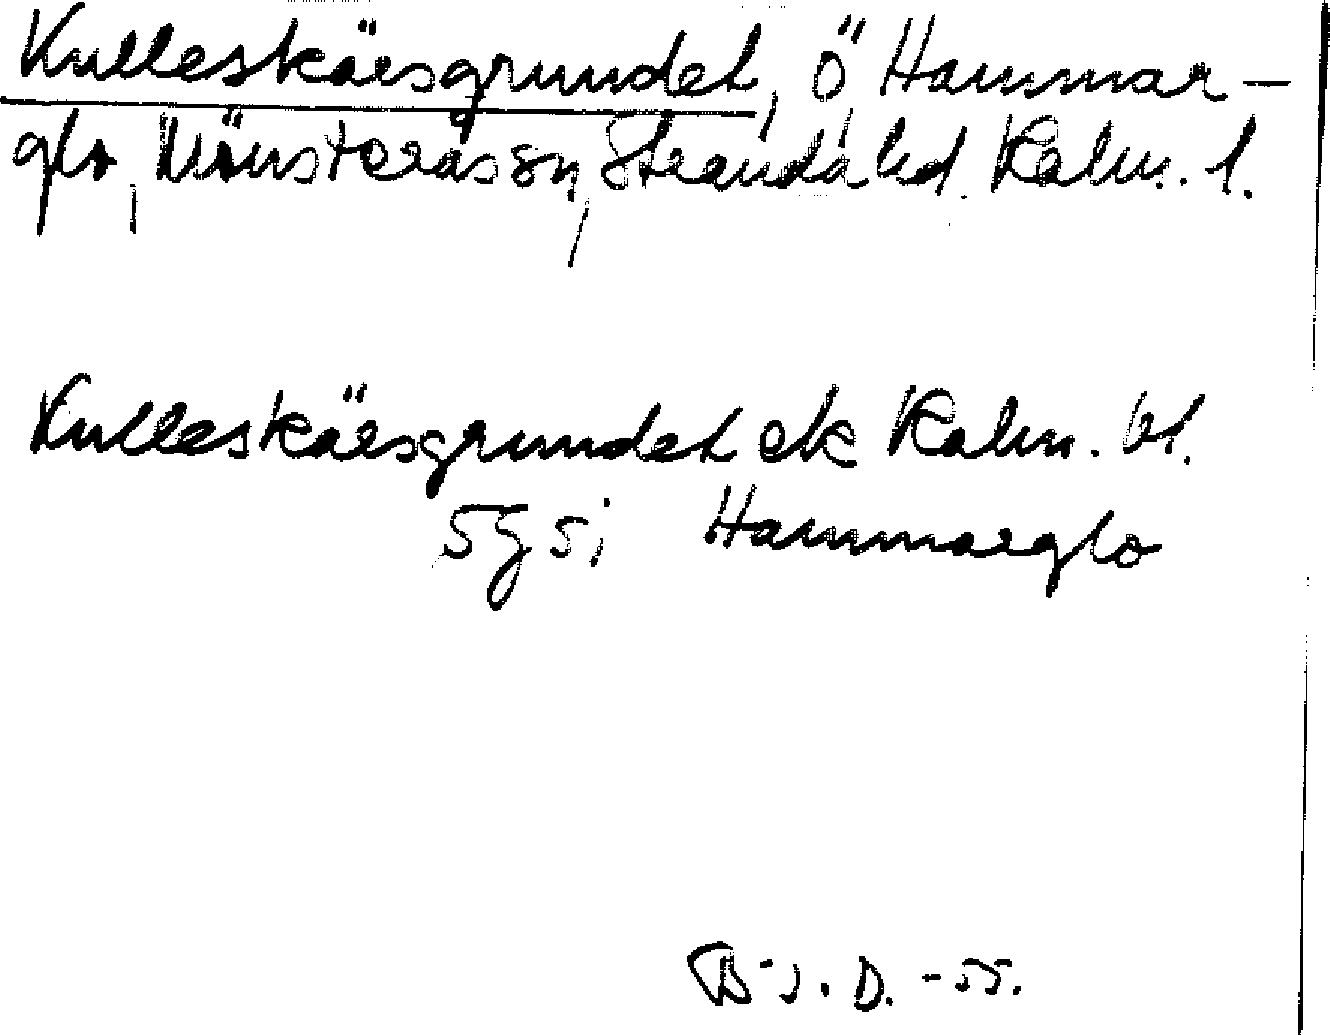 Kulleskärsgrundet, Ö Hammar-
glo, Mönsterås sn, Stranda hd. Kalm. l.
Kulleskärsgrundet ek Kalm. bl.
5g 5i Hammarglo
B-J. D. -55.